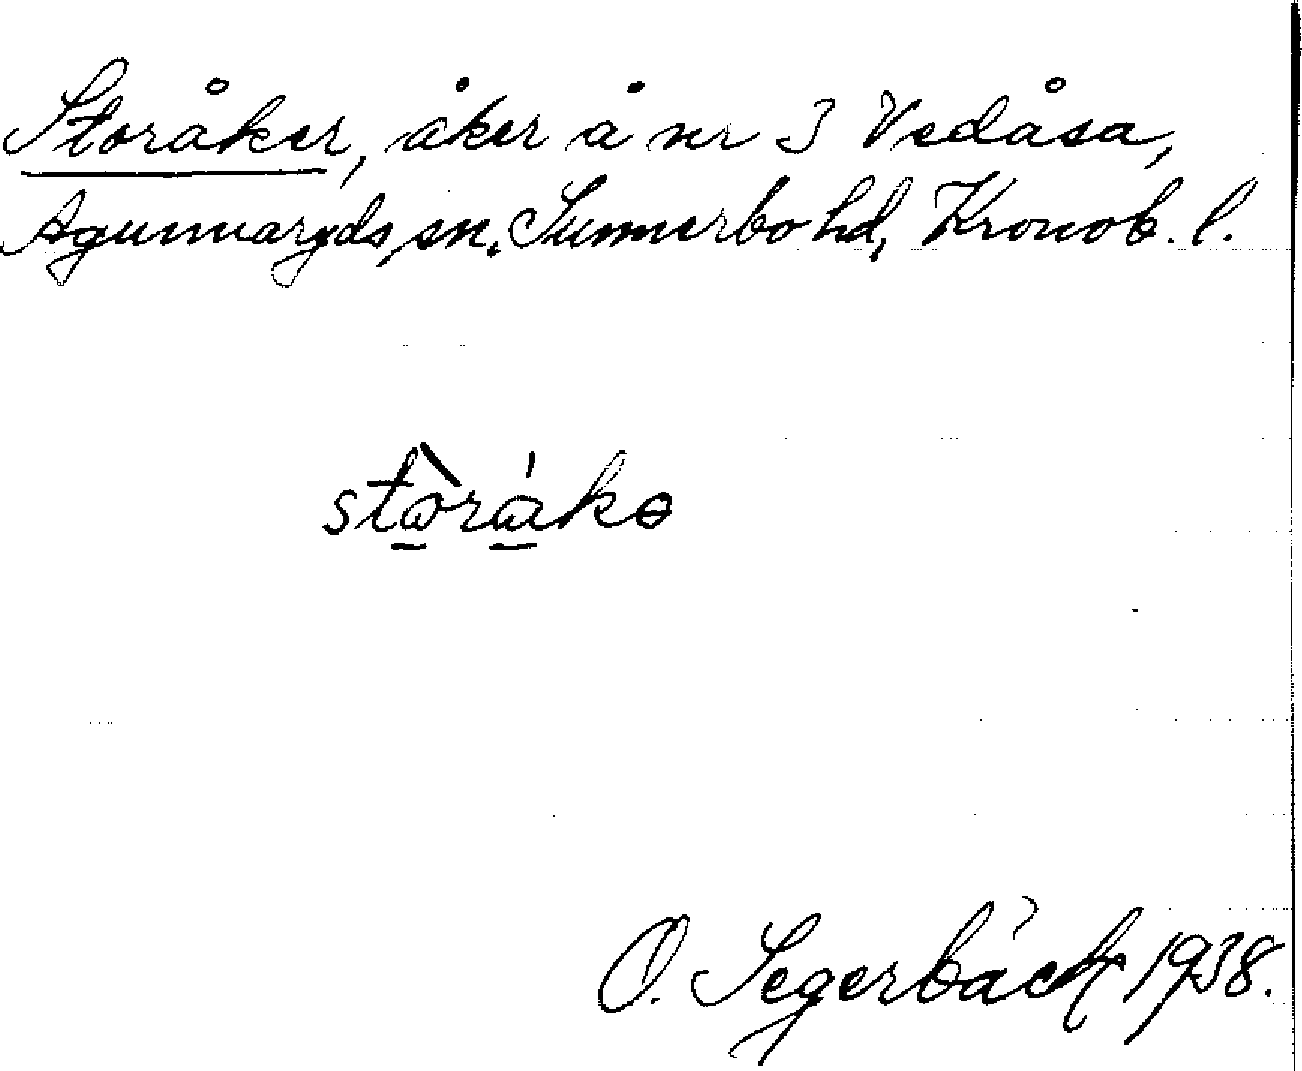 Storåker, åker å nr 3 Vedåsa,
Agunnaryds sn. Sunnerbo hd, Kronob. l.
stòrákɵ
O. Segerbäck 1938.